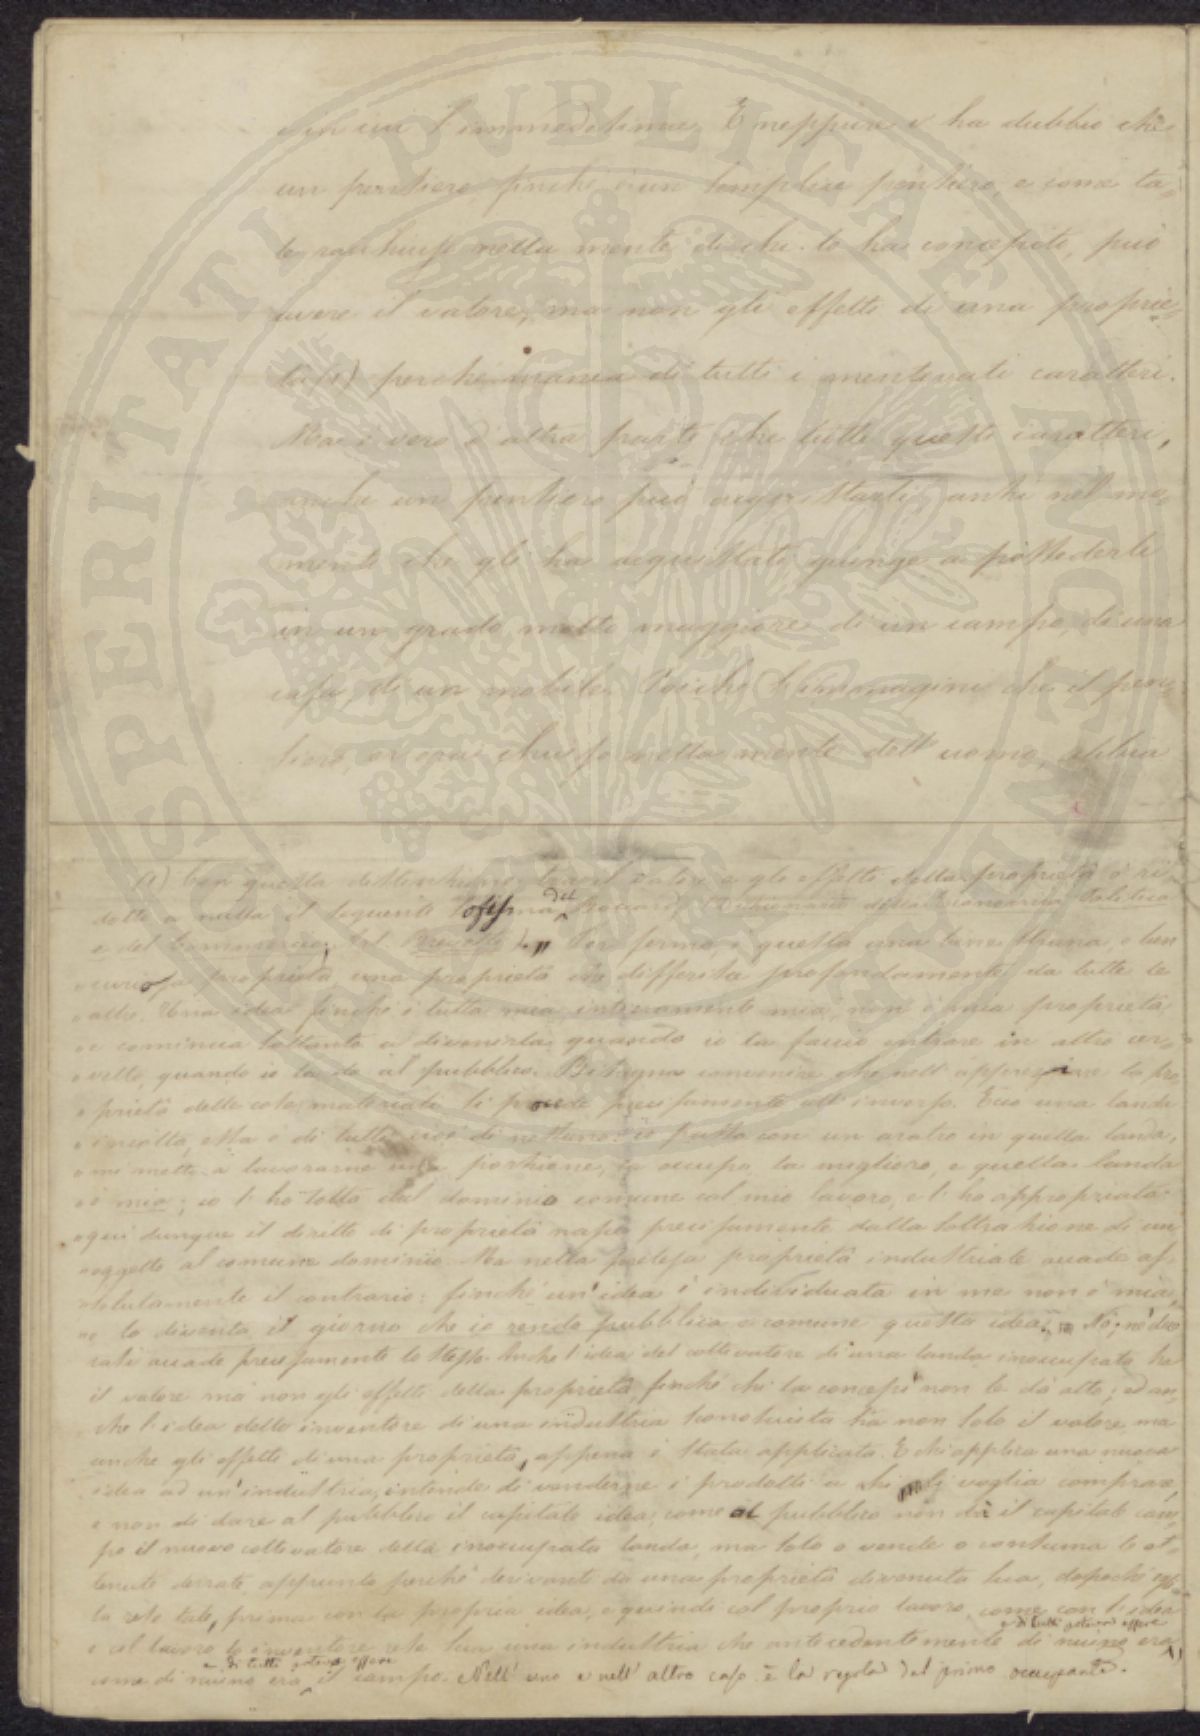 in cui l'immedesima. E neppure v'ha dubbio che
un pensiero finché è un semplice pensiero, e come ta-
le racchiuso nella mente di chi lo ha concepito, può
avere il valore, ma non gli effetti di una proprie-
tà (1) perché manca di tutti i mentovati caratteri.
Ma è vero d'altra parte che tutti questi caratteri,
anche un pensiero può acquistarli, anzi nel mo-
mento che gli ha acquistati, giunge a possederli
in un grado molto maggiore di un campo, di una
casa, di un mobile. Poiché s'immagini che il pen-
siero, or ora chiuso nella mente dell'uomo, abbia
(1) Con questa distinzione tra il valore e gli effetti della proprietà è ri-
dotto a nulla il seguente sofisma del Boccardo Dizionario dell'Economia Politica
e del Commercio, Art. Brevetto). " Per fermo, è questa una bene strana, e ben
" curiosa proprietà, una proprietà che differisce profondamente da tutte le
" altre. Una idea finché è tutta mia, interamente mia, non è mia proprietà
" e comincia soltanto a divenirla quando io la faccio entrare in altro cer-
" vello, quando io la do al pubblico. Bisogna convenire che nell'appropriare la pro
" prietà delle cose materiali si procede precisamente all'inverso. Ecco una landa
" incolta, essa è di tutti cioè di nessuno: io passo con un aratro in quella landa,
" mi metto a lavorarne una porzione, io occupo la migliore, e quella landa
" è mia; io l'ho tolta dal dominio comune col mio lavoro, e l'ho appropriata:
" qui dunque il diritto di proprietà nasce precisamente dalla sottrazione di un
" oggetto al comune dominio. Ma nella pretesa proprietà industriale accade as-
" solutamente il contrario: finché un'idea è individuata in me non è mia,
" e lo diventa il giorno che io rendo pubblica e comune questa idea. " No; nei due
casi accade precisamente lo stesso. Anche l'idea del coltivatore di una landa inoccupata ha
il valore ma non gli effetti della proprietà, finché chi la concepì non le dà atto; ed an-
che l'idea dello inventore di una industria sconosciuta ha non solo il valore, ma
anche gli effetti di una proprietà, appena è stata applicata. E chi applica una nuova
idea ad un'industria, intende di venderne i prodotti a chi voglia comprare,
e non di dare al pubblico il capitale idea; come al pubblico non dà il capitale cam-
po il nuovo coltivatore della inoccupata landa, ma solo o vende o consuma le ot-
tenute derrate, appunto perché derivanti da una proprietà divenuta sua, dopoché egli
la rese tale, prima con la propria idea, e quindi col proprio lavoro, come con l'idea
e col lavoro lo inventore rese sua una industria che antecedentemente di niuno era e di tutti poteva essere,
come di niuno era e di tutti poteva essere il campo. Nell'uno e nell'altro caso è la regola del primo occupante.